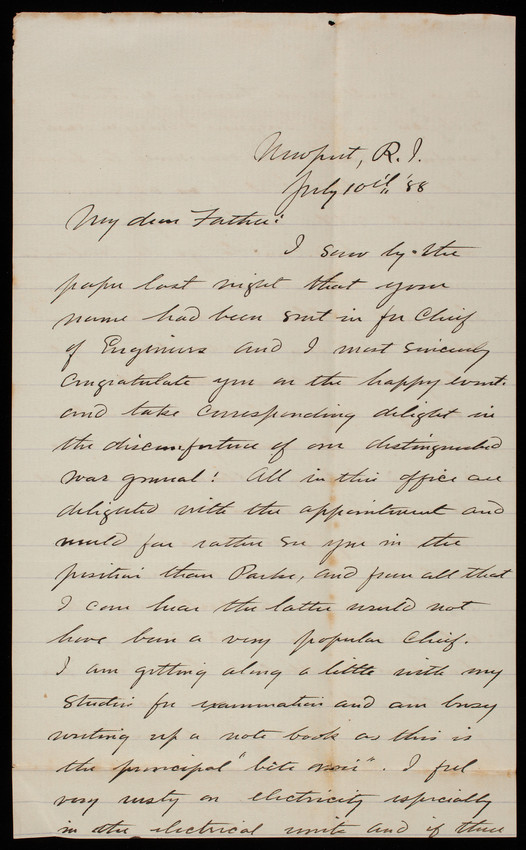 Newport, R.I.
July 10th, '88
My dear Father:
I saw by the
paper last night that your
name had been sent in for Chief
of Engineers and I most sincerely
congratulate you on the happy event.
and take corresponding delight in
the discomfiture of our distinguished
war general! All in this office are
delighted with the appointment and
would far rather see you in the
position than Parke, and from all that
I can hear the latter would not
have been a very popular Chief.
I am getting along a little with my
studies for examination and am busy
writing up a note book as this is
the principal "bête noir". I feel
very rusty on electricity especially
in the electrical units and if there